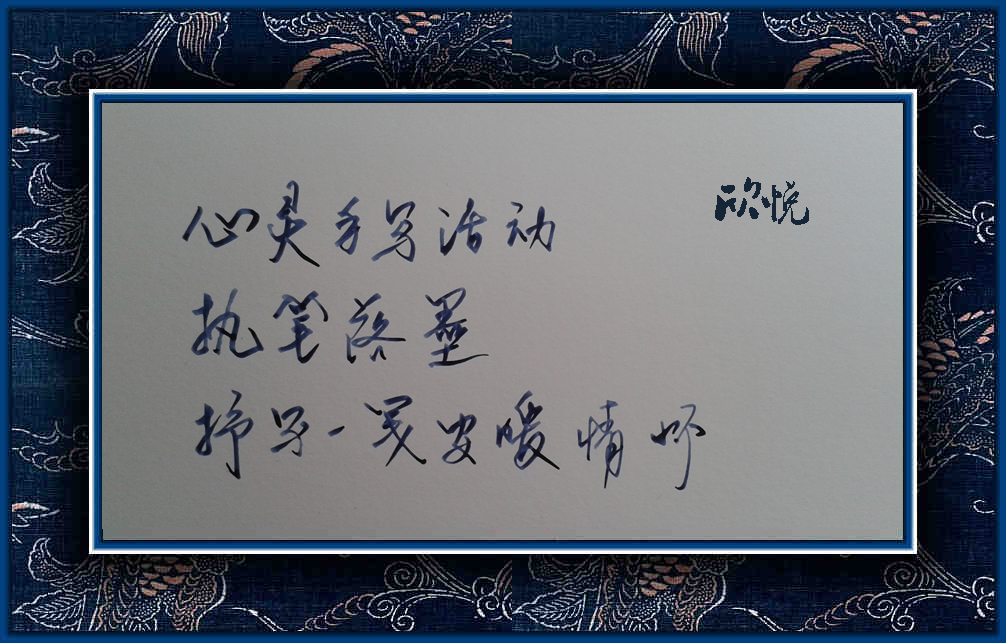 心灵手写活动
欣悦
执笔落墨
抒写一笺安暖情怀